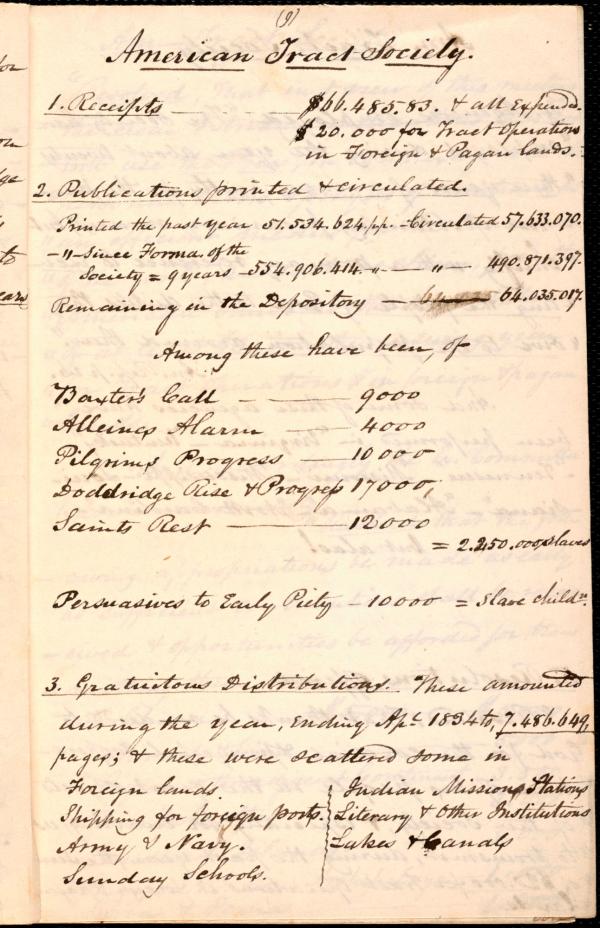 (9)
American Tract Society.
1. Receipts — $66.485.83. & all Expended.
$20.000 for Tract Operations
in Foreign & Pagan lands.
2. Publications printed & circulated.
Printed the past year 51.534.624 pp. – Circulated 57.633.070.
– " – Since Forma. of the
Society = 9 years – 554.906.414. – " – — " – 490.871.397.
Remaining in the Depository — 64.035.017.
Among these have been, of
Baxter's Call — 9000
Alleines Alarm — 4000
Pilgrims Progress — 10000
Doddridge Rise & Progress 17000,
Saints Rest — 12000
= 2.250.000 slaves
Persuasives to Early Piety – 10000 = Slave childn.
3. Gratuitous Distributions. These amounted
during the year, ending Apl. 1834 to, 7.486.649,
pages; & these were scattered some in
Foreign lands. Indian Missions Stations
Shipping for foreign ports. Literary & Other Institutions
Army & Navy. Lakes & Canals
Sunday Schools.